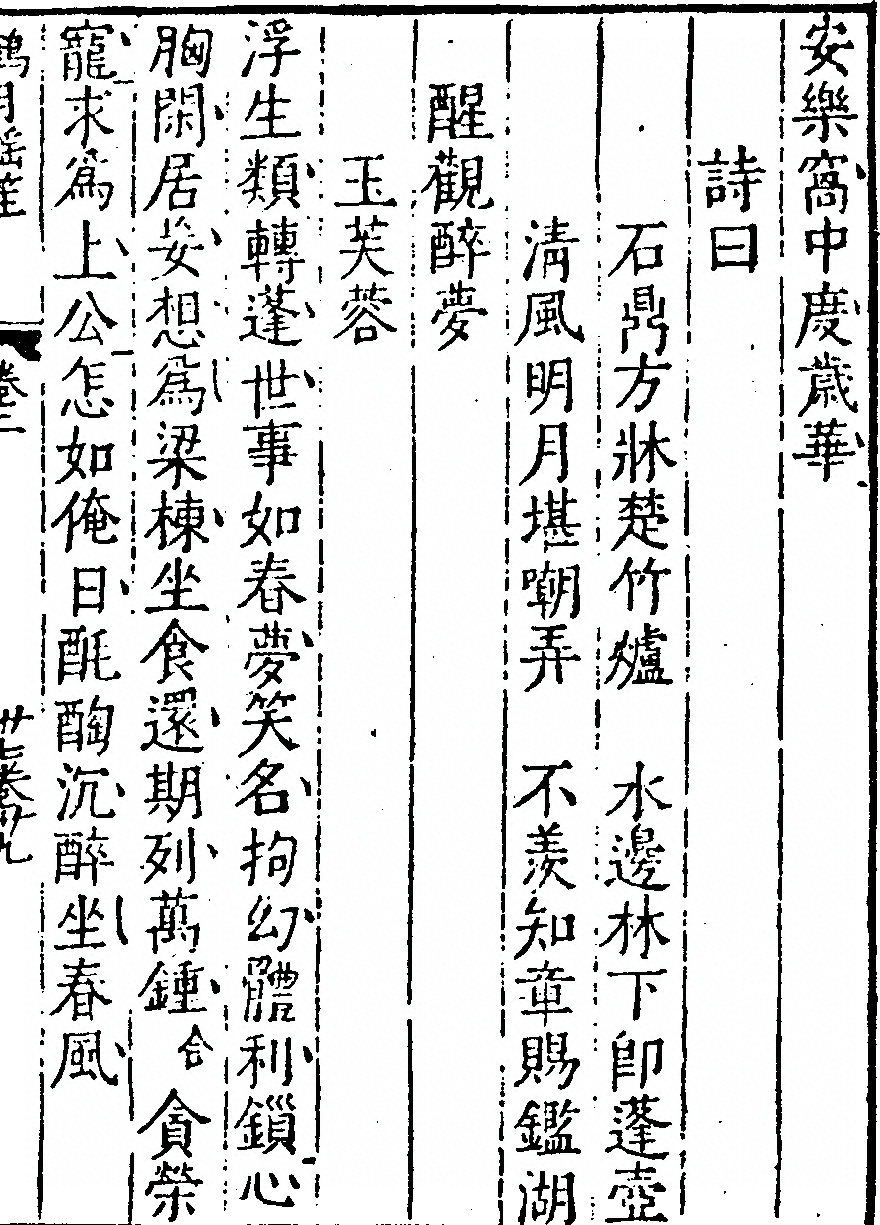 安樂窩中慶歲華
詩曰
石鼎方牀楚竹爐　水邊林下卽蓬壺
淸風明月堪嘲弄　不羨知章賜鑑湖
醒觀醉夢
玉芙蓉
浮生類轉蓬世事如春夢笑名拘幻體利鎖心
胸閑居妄想爲梁棟坐食還期列萬鍾合貪榮
寵求爲上公怎如俺日酕醄沉醉坐春風
卷二